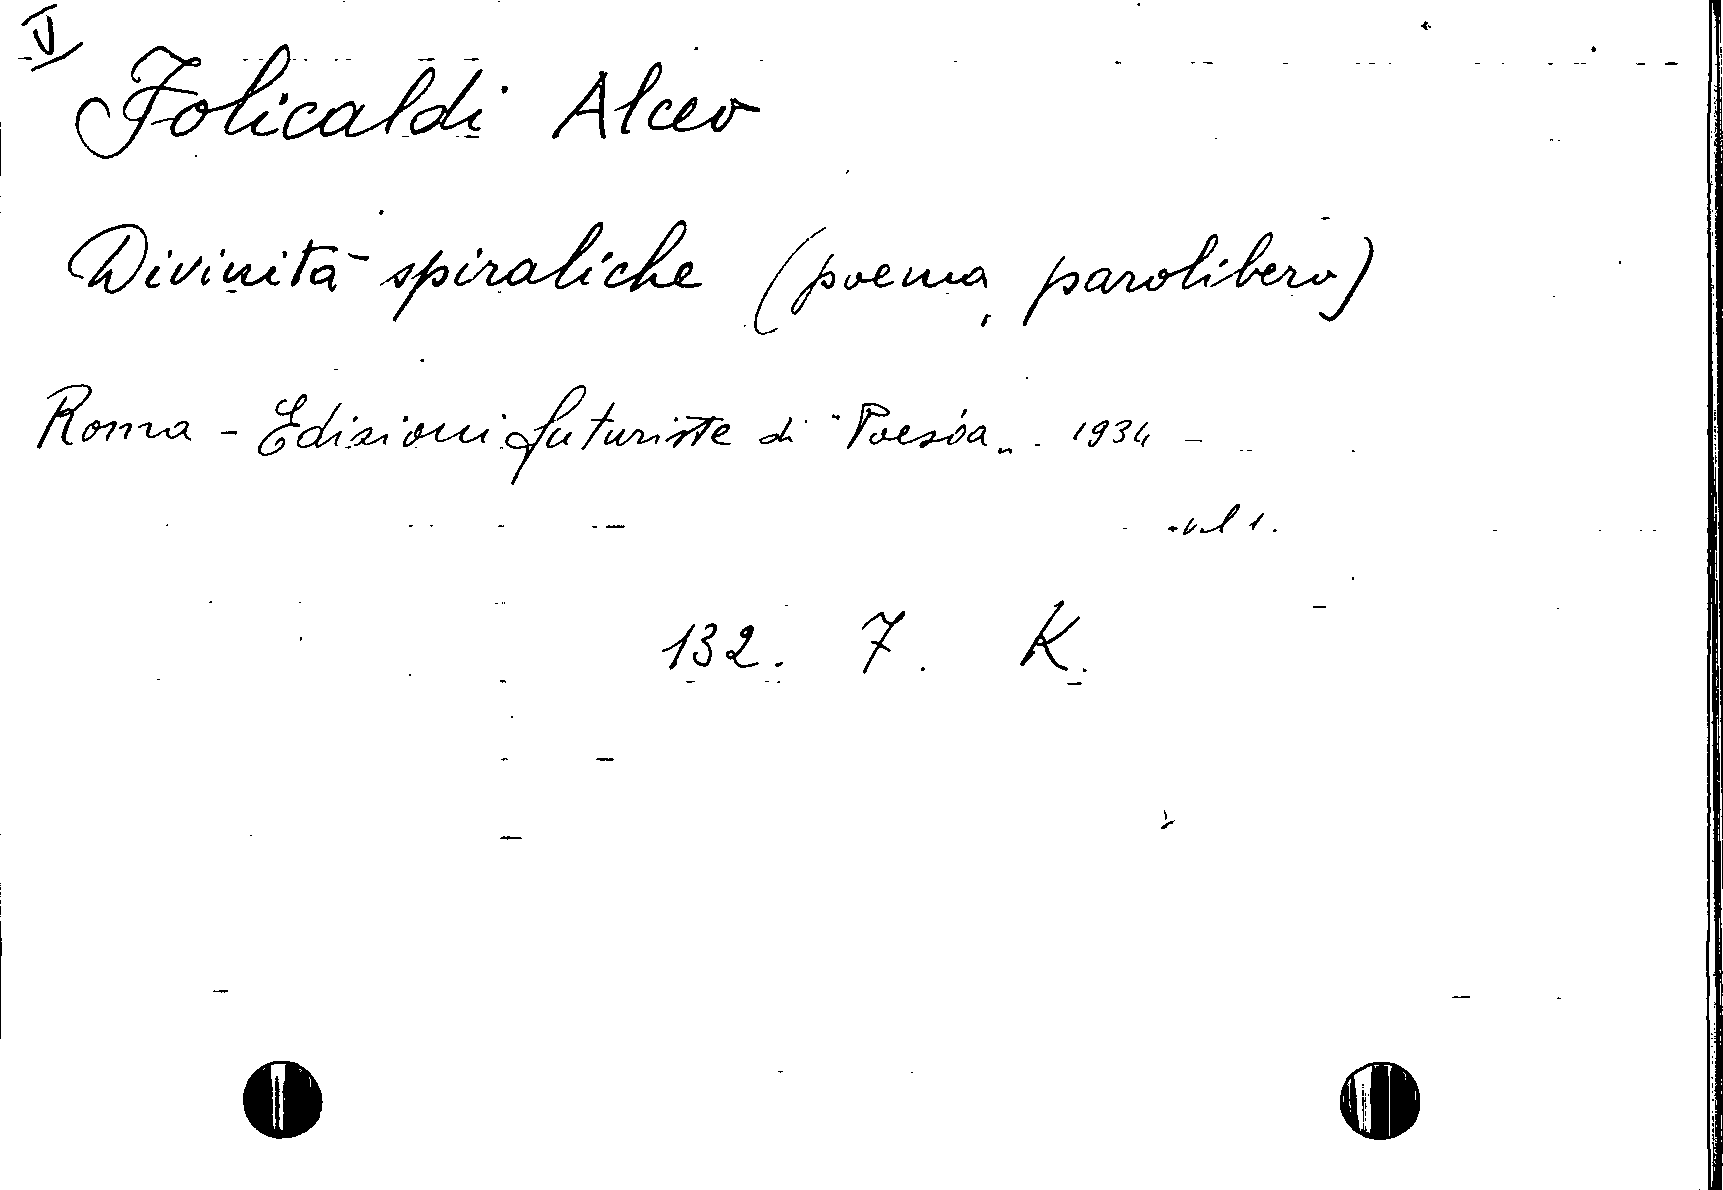 V
Folicaldi Alceo
Divinità spiraliche (poema parolibero)
Roma - Edizioni futuriste di "Poesia" - 1934 -
vol 1.
132. 7. K.